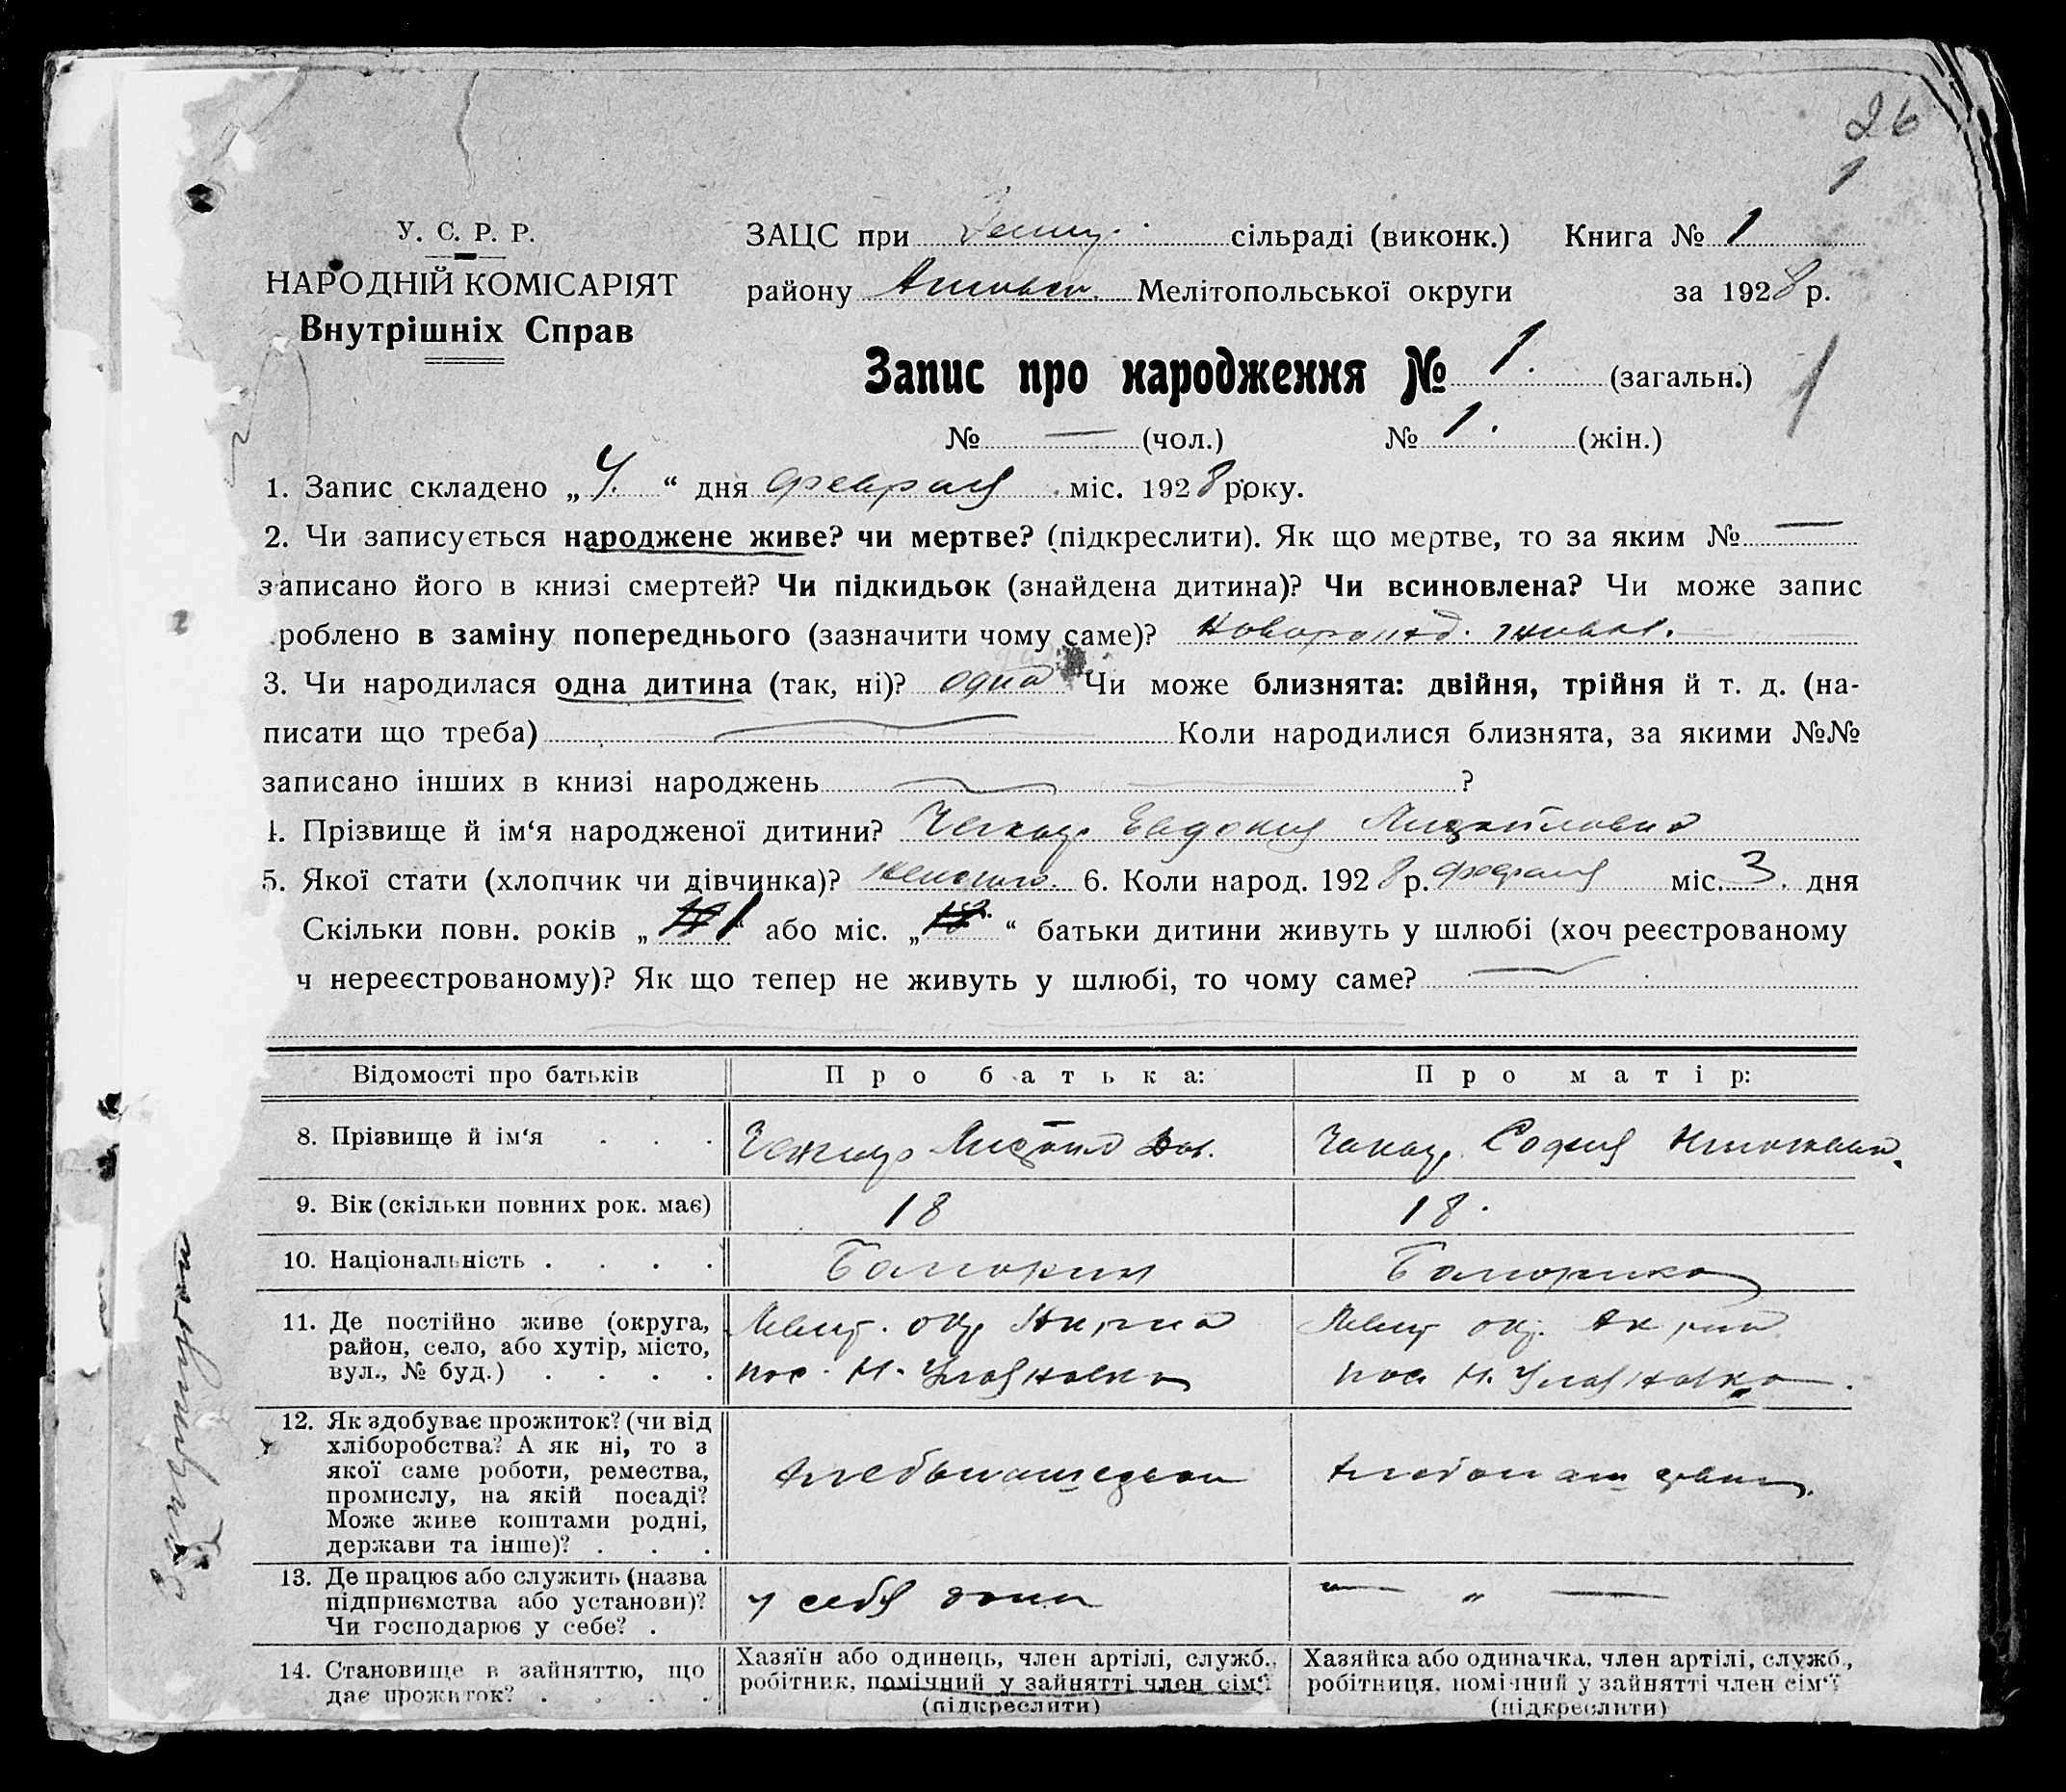 26
1
У. С. Р. Р.
НАРОДНІЙ КОМІСАРІЯТ
Внутрішніх Справ
ЗАЦС при сільраді (виконк.) Книга № 1
району Мелітопольської округи за 1928 р.
Запис про народження № 1. (загальн.) 1
№ — (чол.) № 1. (жін.)
1. Запис складено „4.“ дня февраля міс. 1928 року.
2. Чи записується народжене живе? чи мертве? (підкреслити). Як що мертве, то за яким № —
записано його в книзі смертей? Чи підкидьок (знайдена дитина)? Чи всиновлена? Чи може запис
роблено в заміну попереднього (зазначити чому саме)? Новорожд. живая.
3. Чи народилася одна дитина (так, ні)? одна Чи може близнята: двійня, трійня й т. д. (на-
писати що треба) — Коли народилися близнята, за якими №№
записано інших в книзі народжень — ?
4. Прізвище й ім‘я народженої дитини? Евдокия Михайловна
5. Якої стати (хлопчик чи дівчинка)? женского. 6. Коли народ. 1928 р. февраля міс. 3. дня
Скільки повн. років „1“ або міс. „ “ батьки дитини живуть у шлюбі (хоч реєстрованому
ч нереєстрованому)? Як що тепер не живуть у шлюбі, то чому саме? —
Відомості про батьків Про батька: Про матір:
8. Прізвище й ім‘я . . . Михаил София
9. Вік (скільки повних рок. має) 18 18.
10. Національність . . . . Болгарин Болгарка
11. Де постійно живе (округа,
район, село, або хутір, місто,
вул., № буд.) . . . .
Мелит. окр.
Мелит. окр.
12. Як здобуває прожиток? (чи від
хліборобства? А як ні, то з
якої саме роботи, ремества,
промислу, на якій посаді?
Може живе коштами родні,
держави та інше)? . . .
хлебопашество
хлебопаш
13. Де працює або служить (назва
підприємства або установи)?
Чи господарює у себе? .
у себя дома
— „ —
14. Становище в зайняттю, що
дає прожиток? . . . .
Хазяїн або одинець, член артілі, служб.,
робітник, помічний у зайнятті член сім‘ї
(підкреслити)
Хазяйка або одиначка, член артілі, служб.,
робітниця, помічний у зайнятті член сім‘ї
(підкреслити)